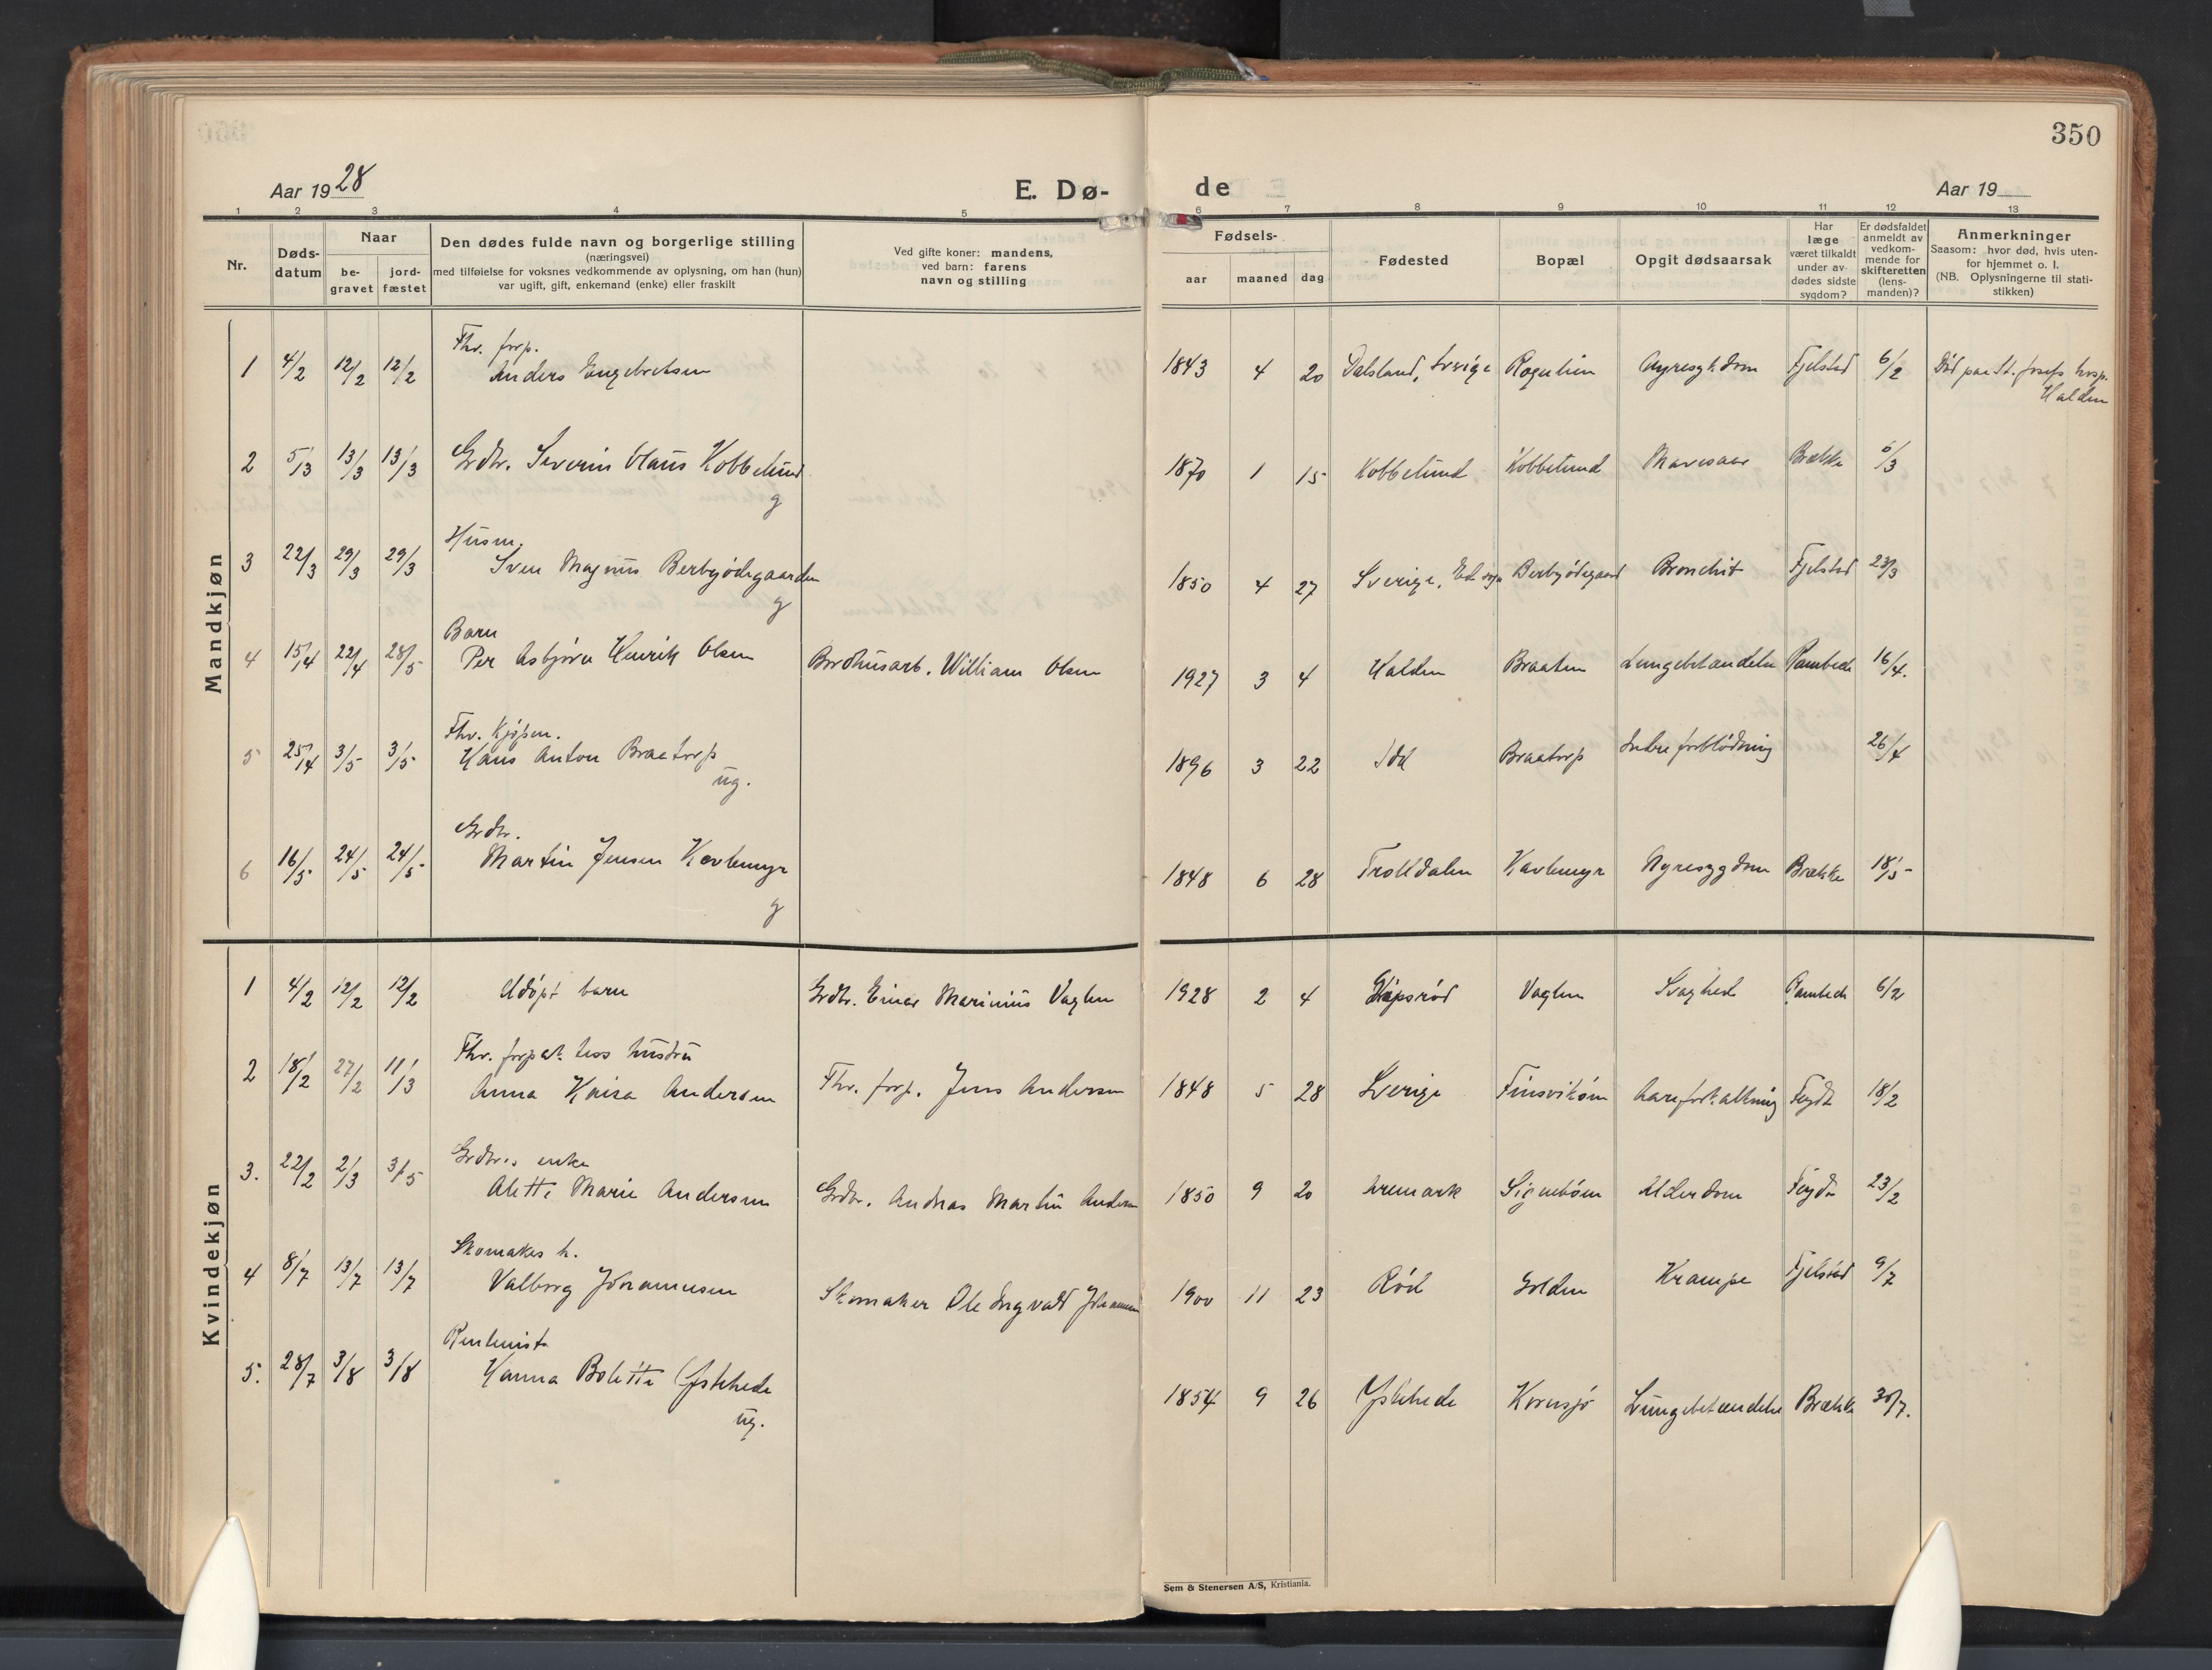 350
Aar 1928
E. Dø-
de
Aar 19
1 2 3 4 5 6 7 8 9 10 11 12 13
Nr.
Døds-
datum
Naar
be-
gravet
jord-
fæstet
Den dødes fulde navn og borgerlige stilling
(næringsvei)
med tilføielse for voksnes vedkommende av oplysning, om han (hun)
var ugift, gift, enkemand (enke) eller fraskilt
Ved gifte koner: mandens,
ved barn: farens
navn og stilling
Fødsels-
aar maaned dag
Fødested
Bopæl
Opgit dødsaarsak
Har
læge
været tilkaldt
under av-
dødes sidste
sygdom?
Er dødsfaldet
anmeldt av
vedkom-
mende for
skifteretten
(lens-
manden)?
Anmerkninger
Saasom: hvor død, hvis uten-
for hjemmet o. l.
(NB. Oplysningerne til stati-
stikken)
Mandkjøn
Fhv. forp.
1 4/2 12/2 12/2 Anders Engebretsen 1843 4 20 Dalsland, Sverige Nyresykdom Fjelstad 6/2 Död paa St. Josefs hosp.
Halden
2 5/3 13/3 13/3 Grdbr. Severin Olaus Kobbelund 1870 1 15 Kobbelund Kobbelund Mavesaar Brække 6/3
g
Husm.
3 22/3 29/3 29/3 Sven Magnus Berbyödegaarden 1850 4 27 Sverige, Ed sogn Berbyödegaard Bronchit Fjelstad 23/3
g
Barn
4 15/4 22/4 28/5 Per Asbjörn Henrik Olsen William Olsen 1927 3 4 Halden Braaten Lungebetændelse Rambech 16/4.
Fhv. Kjøpm.
5 25/4 3/5 3/5 Hans Anton Braatorp 1896 3 22 Idd Braatorp Indre forblödning 26/4
ug.
Grdbr.
6 16/5 24/5 24/5 Martin Jensen Kavlemyr 1848 6 28 Trolldalen Kavlemyr Nyresygdom Brække 18/5
g
Kvindekjøn
1 4/2 12/2 12/2 Udöpt barn Grdbr. Einar Marinius Vaglen 1928 2 4 Vaglen Svaghed Rambech 6/2
Fhv. hustru
2 18/2 27/2 11/3 Anna Kaisa Andersen Fhv. forp. Jens Andersen 1848 5 28 Sverige Aareforkalkning 18/2
Grdbr.s enke
3. 22/2 2/3 3/5 Alette Marie Andersen Grdbr. Andreas Martin Andersen 1850 9 20 Aremark Signebøen Alderdom 23/2
Skomakes h.
4 8/7 13/7 13/7 Valborg Johannesen Skomaker Ole Ingvald Johannesen 1900 11 23 Röd Krampe Fjelstad 9/7
5. 28/7 3/8 3/8 Hanna Bolette Ystehede 1854 9 26 Ystehede Kornsjø Lungebetændelse Brække 30/7.
ug.
Sem & Stenersen A/S, Kristiania.